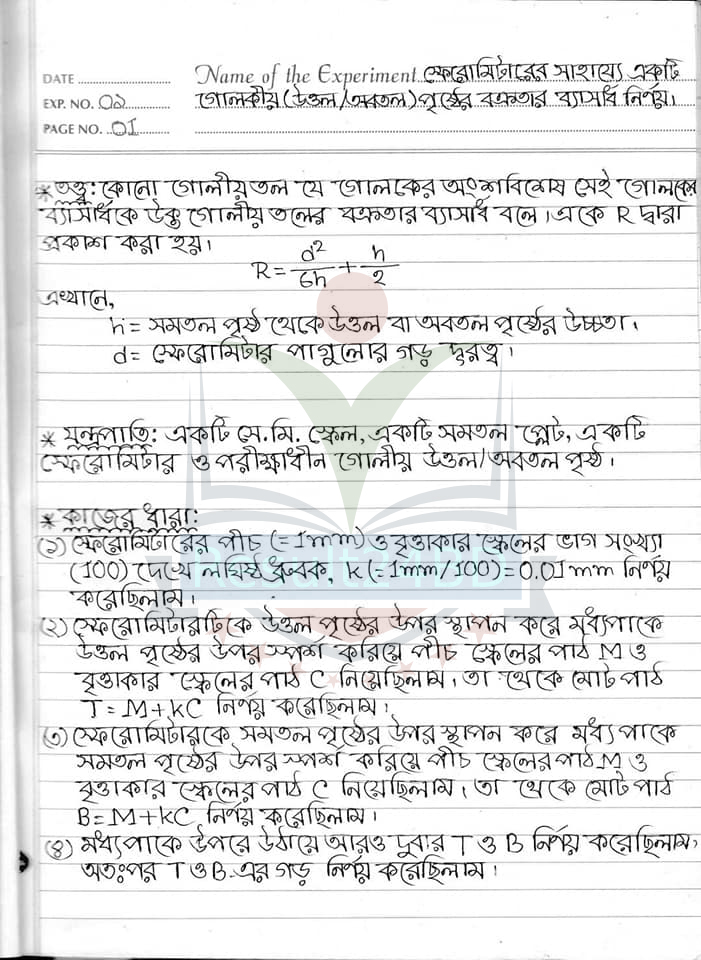 DATE .................... Name of the Experiment স্ফেরোমিটারের সাহায্যে একটি
EXP. NO. 02 গোলকীয় (উত্তল/অবতল) পৃষ্ঠের বক্রতার ব্যাসার্ধ নির্ণয়।
PAGE NO. 01
* তত্ত্ব: কোনো গোলীয় তল যে গোলকের অংশবিশেষ সেই গোলকের
ব্যাসার্ধকে উক্ত গোলীয় তলের বক্রতার ব্যাসার্ধ বলে। একে R দ্বারা
প্রকাশ করা হয়।
R = d²/6h + h/2
এখানে,
h = সমতল পৃষ্ঠ থেকে উত্তল বা অবতল পৃষ্ঠের উচ্চতা।
d = স্ফেরোমিটার পাগুলোর গড় দূরত্ব।
* যন্ত্রপাতি: একটি সে.মি. স্কেল, একটি সমতল প্লেট, একটি
স্ফেরোমিটার ও পরীক্ষাধীন গোলীয় উত্তল/অবতল পৃষ্ঠ।
* কাজের ধারা:
(১) স্ফেরোমিটারের পীচ (=1mm) ও বৃত্তাকার স্কেলের ভাগ সংখ্যা
(100) দেখে লঘিষ্ঠ ধ্রুবক, K (=1mm/100) = 0.01 mm নির্ণয়
করেছিলাম।
(২) স্ফেরোমিটারটিকে উত্তল পৃষ্ঠের উপর স্থাপন করে মধ্যপাকে
উত্তল পৃষ্ঠের উপর স্পর্শ করিয়ে পীচ স্কেলের পাঠ M ও
বৃত্তাকার স্কেলের পাঠ C নিয়েছিলাম। তা থেকে মোট পাঠ
T = M+KC নির্ণয় করেছিলাম।
(৩) স্ফেরোমিটারকে সমতল পৃষ্ঠের উপর স্থাপন করে মধ্যপাকে
সমতল পৃষ্ঠের উপর স্পর্শ করিয়ে পীচ স্কেলের পাঠ M ও
বৃত্তাকার স্কেলের পাঠ C নিয়েছিলাম। তা থেকে মোট পাঠ
B=M+KC নির্ণয় করেছিলাম।
(৪) মধ্যপাকে উপরে উঠায়ে আরও দুবার T ও B নির্ণয় করেছিলাম,
অতঃপর T ও B এর গড় নির্ণয় করেছিলাম।